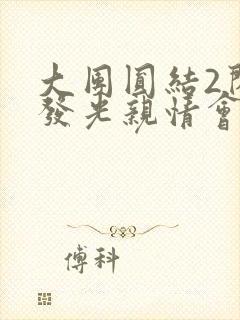 大團圓結2閃
發光親情會
傅科